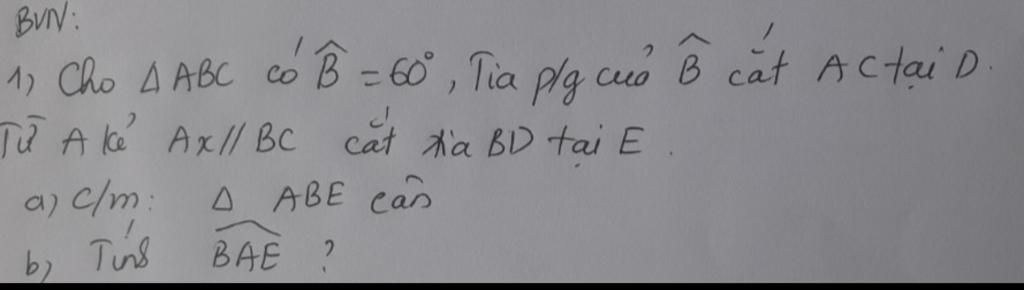 BVN:
1) Cho Δ ABC có B̂ = 60°, Tia p/g của B̂ cắt AC tại D.
Từ A kẻ Ax // BC cắt tia BD tại E.
a) C/m: Δ ABE cân
b) Tính B͡AE ?